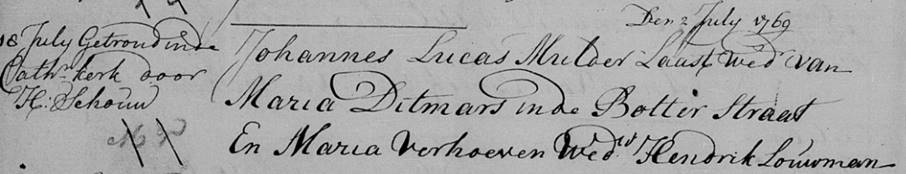 Den 2 July 1769
18 July Getroud in de
Cath: kerk door
H: Schouw
Johannes Lucas Mulder Laast Wedr van
Maria Ditmars in de Botter Straat
En Maria Verhoeven Wed: Hendrik Louwman